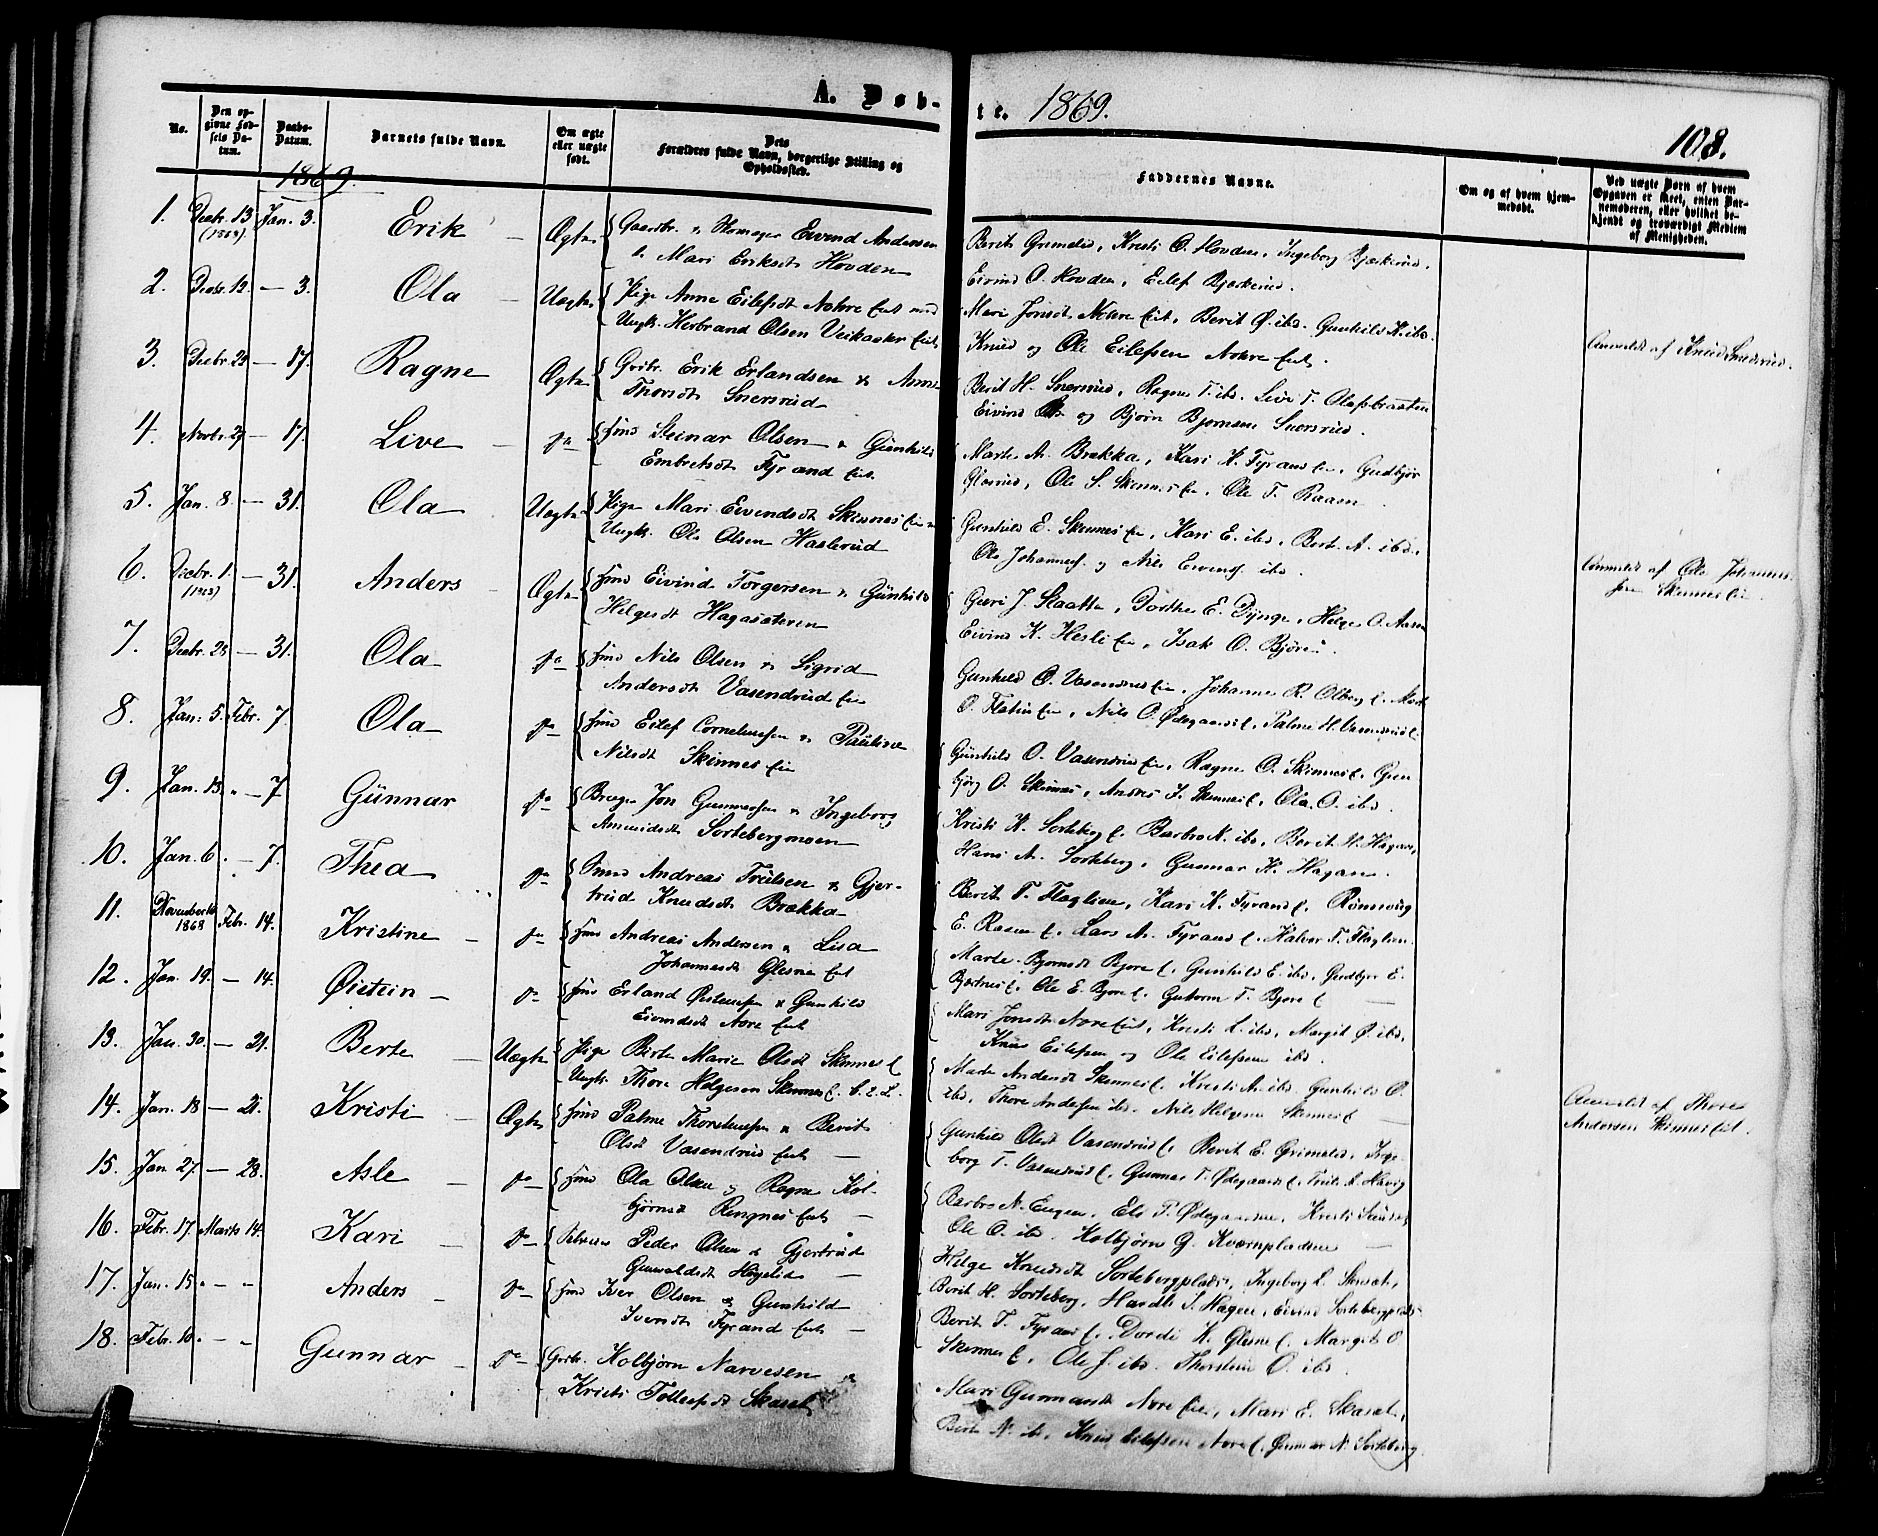 A. Døb-
te. 1869.
108.
No.
Den op-
givne Fød-
sels Da-
tum.
Daabs-
Datum.
Barnets fulde Navn.
Om ægte
eller uægte
født.
Dets
Forældres fulde Navn, borgerlige Stilling og
Opholdssted.
Faddernes Navne.
Om og af hvem hjem-
medøbt.
Ved uægte Børn af hvem
Opgaven er skeet, enten Bar-
nemoderen, eller hvilket be-
kjendt og troværdigt Medlem
af Menigheden.
1869.
1. Decbr. 13 Jan. 3. Erik – Ægte Gaardbr. Eivind Andersen
& Mari Eriksdt Hovden
Berit Grimelid, Kristi O. Hovden, Ingeborg Bjerkerud,
Eivind O. Hovden, Eilef Bjerkerud.
2. Decbr. 12 – 3. Ola – Uægte Pige Anne Eilefsdt Nohre Eiet med
Ungk. Herbrand Olsen Veikaaker Eiet
Mari Jonsdt Nohre Eiet, Berit Ø. ibd. Gunhild K. ibd.
Knud og Ole Eilefsen Nohre Eiet.
Anmeldt af Knud Snersrud.
3. Decbr. 23 – 17. Ragne Ægte Grbr. Erik Erlandsen & Anne
Thorsdt Snersrud
Berit H. Snersrud, Ragne T. ibd. Live T. Olafsbraaten
Eivind og Bjørn Bjørnsen Snersrud.
4. Novbr. 27 – 17. Live – Do Hmd Steinar Olsen & Gunhild
Embretsdt Fyrand Eiet.
Marte A. Brække, Kari K. Fyrand Eie, Gudbjør
Glæsrud, Ole S. Skinnes Eie, Ole T. Raaen.
5. Jan. 8. – 31. Ola Uægte Pige Mari Eivendsdt Skinnes Eie &
Ungk. Ole Olsen Haslerud
Gunhild E. Skinnes Eie, Kari E. ibd, Berit A. ibd.
Ole Johannes. og Nils Eivends. ibd.
Anmeldt af Ole Johannes-
sen Skinnes Eie.
6. Decbr. 1. – 31. Anders – Ægte Hmd Eivind Torgersen & Gunhild
Helgesdt Hagasæteren
Guri J. Staatta, Dorthe E. Dynge, Helge O. Aasen
Eivind K. Hesli Eie, Isak O. Bjøre.
7. Decbr. 28 – 31. Ola Do Hmd Nils Olsen & Sigrid
Andersdt Vasendrud Eie
Gunhild O. Vasendrud Eie, Johanne R. Olberg E. Marte
O. Flatin Eie, Nils O. Ødegaard E. Palme H. Vasendrud E.
8. Jan. 5. Febr. 7 Ola Do Hmd Eilef Corneliussen & Pauline
Nilsdt Skinnes Eie
Gunhild O. Vasendrud Eie, Ragne O. Skinnes E. Gun-
bjørg O. Skinnes, Anders J. Skinnes E. Ola O. ibd.
9. Jan. 13. " – 7 Gunnar Do Bruger Jon Gunnarsen & Ingeborg
Amundsdt Sortebergmoen
Kristi K. Sorteberg E. Barbro N. ibd, Berit H. Hagan,
Hans A. Sorteberg, Gunnar K. Hagan.
10. Jan. 6. – 7. Thea Do Andreas Trulsen & Gjer-
trud Knudsdt Brækka
Berit T. Flaglien, Kari K. Fyrand E. Rønnaug
E. Raaen E. Lars A. Fyrand E. Halvor T. Flaglien.
11. November 1868 Febr. 14. Kristine – Do Hmd Andreas Andersen & Lisa
Johannesdt Glesne Eiet
Marte Bjørnsdt Bjøre E. Gunhild E. ibd. Gudbjør E.
Ole E. Bjøre E. Guttorm T. Bjøre E –
12. Jan. 19. – 14. Øistein – Do Hmd Erland Østensen & Gunhild
Eivindsdt Nore Eiet
Mari Jonsdt Nore Eiet, Kristi L. ibd, Margit Ø. ibd,
Knud Eilefsen og Ole Eilefsen ibd.
13. Jan. 30. – 21. Berte – Uægte Pige Birte Marie Olsdt Skinnes E
Ungk. Thore Helgesen Skinnes E. b. 2. L.
Marte Andersdt Skinnes E. Kristi A. ibd. Gunhild O.
ibd, Thore Andersen ibd. Nils Helgesen Skinnes E –
Anmeldt af Thore
Andersen Skinnes Eiet.
14. Jan. 18 – 21. Kristi – Ægte Hmd Palme Thorstensen & Berit
Olsdt Vasendrud Eiet –
Gunhild Olsdt Vasendrud E. Berit E. Grimelid, Inge-
borg T. Vasendrud E. Gunnar T. Ødegaard E.
15. Jan. 27. – 28. Asle – Do Hmd Ola Olsen & Ragne Kol-
bjørnsdt Rengnes Eiet –
Barbro N. Eugen, Eli T. Ødegaarden, Kristi
Ole O. ibd. Kolbjørn G. Kværnpladsen –
16. Febr. 17. Marts 14. Kari – Do Peder Olsen & Gjertrud
Gunvaldsdt Høgelid –
Helge Knudsdt Sortebergplads, Ingeborg L. Skasat,
Berit H. Sorteberg, J. Hagen, Eivind Sortebergplads
17. Jan. 15. " " Anders – Do Hmd Iver Olsen & Gunhild
Iversdt Fyrand Eiet –
Berit T. Fyrand E. Dordi K. Glesne E. Margit O
Skinnes E. Ole J. ibd. Thorstein O. ibd.
18. Febr. 10. " " Gunnar – Do Grbr. Kolbjørn Narvesen &
Kristi Tollefsdt Skasat
Mari Gunnarsdt Nore Eiet, Mari E. Skasat,
Berit N. ibd, Knud Eilefsen Nore E. Gunnar N. Sorteberg